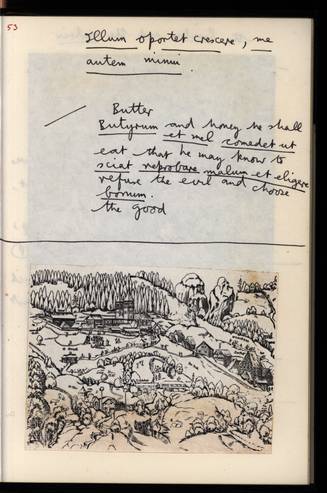 53
Illum oportet crescere, me
autem minui.
Butter
Butyrum and honey he shall
et mel comedet ut
eat that he may know to
sciat reprobare malum et eligere
refuse the evil and choose
bonum.
the good